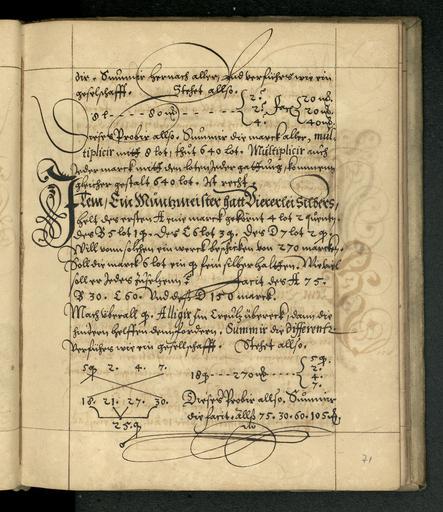 die. Summir hernach alles, und verfuhrs wie ein
geselschafft. Stehet allso.
2. 20 m.
8 l - - - 80 m 2. 20 m.
4. 40 m.
Dieses Probir allso. Summir die marck aller, mul
tiplicir mitt 8 lot, thut 640 lot. Multiplicir auch
Jeder marck mitt den loten Jeder gattung, kommen
gleicher gestalt 640 lot. Ist recht.
Item, Ein Müntzmeister hatt Viererlei Silbers,
helt des ersten A ein marck gekürnt 4 lot 2
des B 5 lot 1 q. des C 6 lot 3 q. des D 7 lot 2 q.
Will vom solchen ein werck beschicken von 270 marcken,
Soll die marck 6 lot ein q fein silber halten. Wieviel
soll er Jedes facit des A 75.
B 30. C 60. Und des D 150 marck.
Mach überall q. Alligir sie Creutz übereck, dann die
hindern helffen den fordern. Summir die differentz
Verfuhrs wie ein geselschafft. Stehet allso.
5 q 2. 4. 7.
18. 21. 27. 30.
25. q
18 q - - - 270 m
5 q.
2.
4.
7.
Dieses Probir allso. Summir
die facit. allß 75. 30. 60. 105.
71